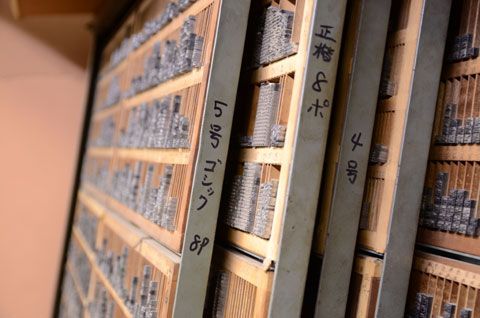 5号ゴシック 8P
正楷 8ポ
4号